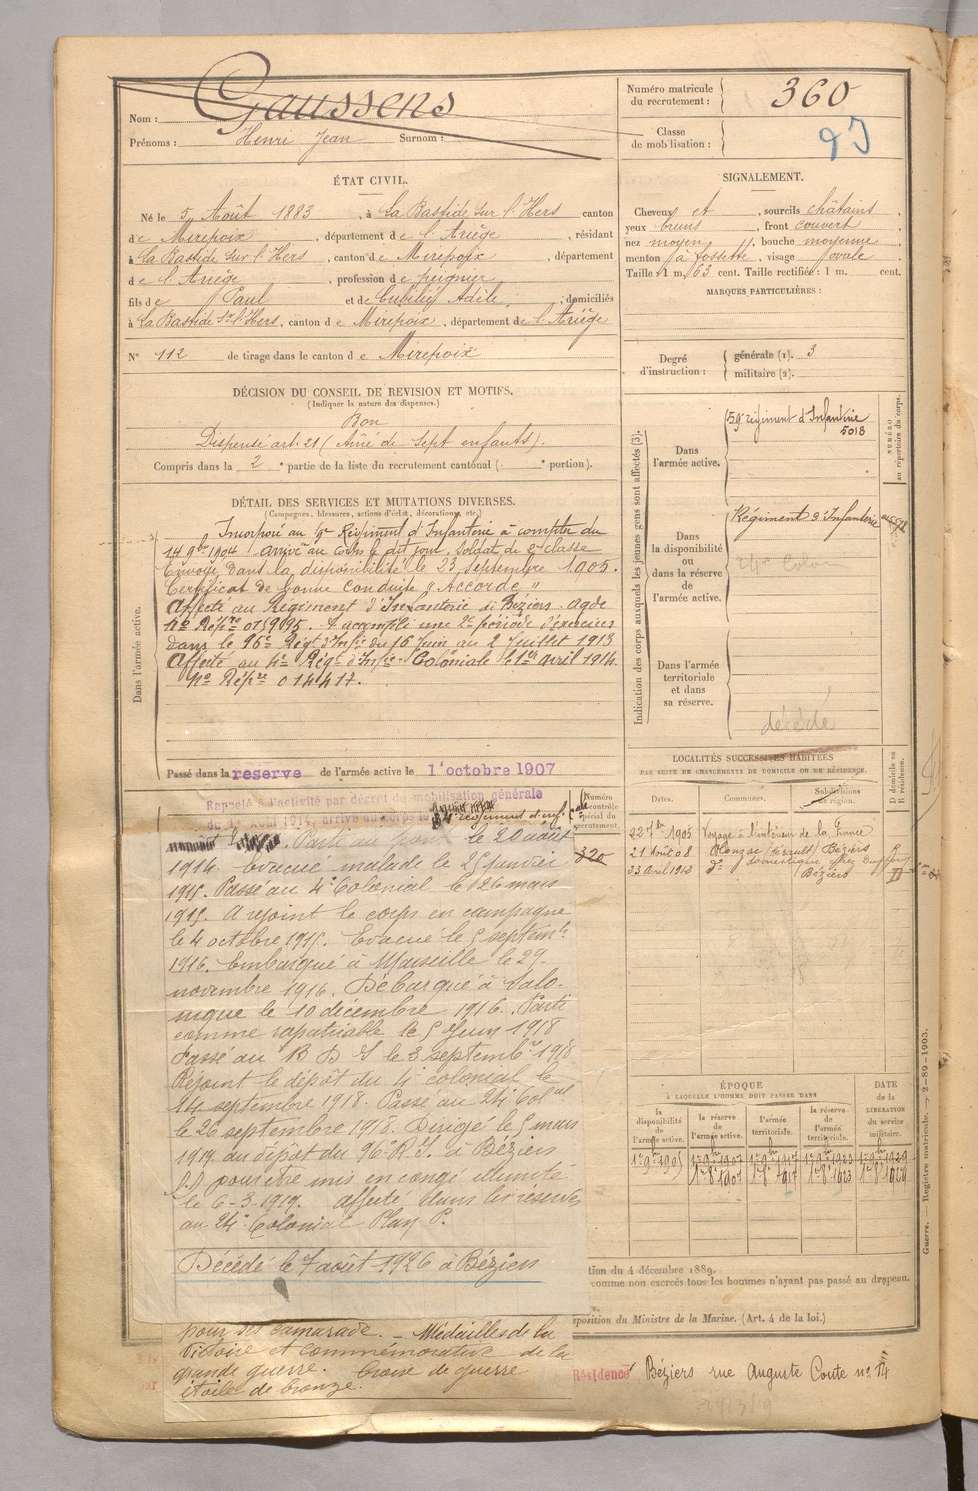 Nom : Gaussens
Prénoms : Henri Jean Surnom :
Numéro matricule
du recrutement : 360
Classe
de mobilisation :
ÉTAT CIVIL.
Né le 5 Août 1883, à La Bastide sur l'Hers canton
de Mirepoix, département de l'Ariège, résidant
à La Bastide sur l'Hers, canton de Mirepoix, département
de l'Ariège, profession de peignier
fils de Paul et de Cubiliés Adèle, domiciliés
à La Bastide Sr l'Hers, canton de Mirepoix, département de l'Ariège
N° 112 de tirage dans le canton de Mirepoix
SIGNALEMENT.
Cheveux et, sourcils châtains,
yeux bruns, front couvert
nez moyen, bouche moyenne
menton à fossette, visage ovale
Taille : 1 m. 63 cent. Taille rectifiée : 1 m. cent.
MARQUES PARTICULIÈRES :
Degré
d'instruction :
générale (1). 3
militaire (2).
DÉCISION DU CONSEIL DE REVISION ET MOTIFS.
(Indiquer la nature des dispenses.)
Bon
Dispensé art. 21 (Aîné de sept enfants).
Compris dans la 2e partie de la liste du recrutement cantonal ( e portion).
DÉTAIL DES SERVICES ET MUTATIONS DIVERSES.
(Campagnes, blessures, actions d'éclat, décorations, etc.)
Dans l'armée active.
Incorporé au Régiment d'Infanterie à compter du
14 9bre 1904 arrivé au corps le dit jour, soldat de 2e classe
Envoyé dans la disponibilité le 23 septembre 1905.
Certificat de bonne conduite "Accordé"
Affecté au Régiment d'Infanterie de Béziers-Agde
No Répre 015995. A accompli une 2e période d'exercices
dans le 96e Régt d'Infie du 16 Juin au 2 Juillet 1913
Affecté au 4e Régt d'Infie Coloniale le 1er avril 1914.
No Répre 014417.
Passé dans la reserve de l'armée active le 1er octobre 1907
Rappelé à l'activité par décret de mobilisation générale
du 1er Août 1914, arrivé au corps le régiment d'inf.
Parti au front le 20 août
1914. Evacué malade le 25 janvier
1915. Passé au 4e Colonial le 26 mars
1915. A rejoint le corps en campagne
le 4 octobre 1915. Evacué le 5 septembre
1916. Embarqué à Marseille le 29
novembre 1916. Débarqué à Salo-
nique le 10 décembre 1916. Parti
comme rapatriable le 5 Juin 1918
Passé au le 3 septembre 1918
Rejoint le dépôt du 4e colonial le
14 septembre 1918. Passé au 24e Colal
le 26 septembre 1918. Dirigé le 5 mars
1919 au dépôt du 96e R.I. à Béziers
pour être mis en congé illimité
le 6-3-1919. affecté dans les réserves
au 24e Colonial Plan P.
Décédé le 7 août 1926 à Béziers
pour ses camarade. — Médailles de la
Victoire et commémorative de la
grande guerre. Croix de guerre
étoile de bronze.
Indication des corps auxquels les jeunes gens sont affectés (3).
NUMÉRO
au répertoire du corps.
Dans
l'armée active.
59e régiment d'Infanterie
5018
Dans
la disponibilité
ou
dans la réserve
de
l'armée active.
Régiment d'Infanterie
24e Colon
Dans l'armée
territoriale
et dans
sa réserve.
décédé
LOCALITÉS SUCCESSIVES HABITÉES
PAR SUITE DE CHANGEMENTS DE DOMICILE OU DE RÉSIDENCE.
D domicile ou
R résidence.
Numéro
de contrôle
spécial du
recrutement
320
Dates. Communes. Subdivisions
de région.
22 1905 Voyage à l'intérieur de la France
21 Août 08 Olonzac (Hérault) Béziers R
23 Avril 1912 domestique chez Béziers D
ÉPOQUE
À LAQUELLE L'HOMME DOIT PASSER DANS
DATE
de la
LIBÉRATION
du service
militaire.
la
disponibilité
de
l'armée active.
la réserve
de
l'armée active.
l'armée
territoriale.
la réserve
de
l'armée
territoriale.
tion du 4 décembre 1889.
comme non exercés tous les hommes n'ayant pas passé au drapeau.
sposition du Ministre de la Marine. (Art. 4 de la loi.)
Résidence Béziers rue Auguste Comte no 14
Guerre. — Registre matricule. — 2-89-1903.